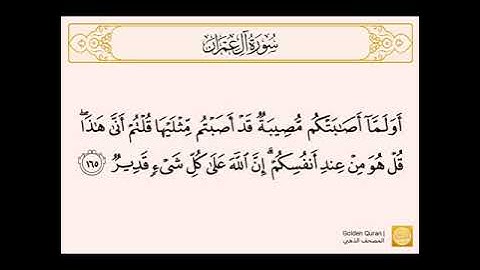 سُورَةُ آلِ عِمۡرَانَ
أَوَلَمَّآ أَصَٰبَتۡكُم مُّصِيبَةٞ قَدۡ أَصَبۡتُم مِّثۡلَيۡهَا قُلۡتُمۡ أَنَّىٰ هَٰذَاۖ
قُلۡ هُوَ مِنۡ عِندِ أَنفُسِكُمۡۗ إِنَّ ٱللَّهَ عَلَىٰ كُلِّ شَيۡءٖ قَدِيرٞ ١٦٥
Golden Quran |
المصحف الذهبي